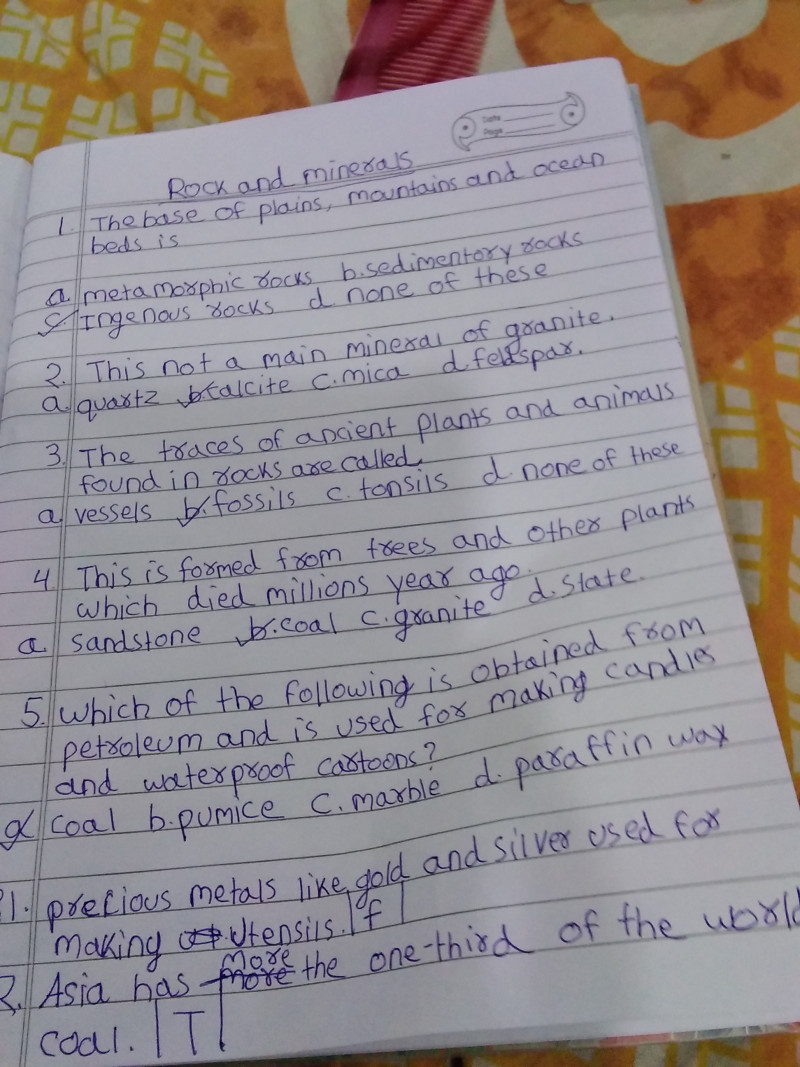 Date
Page
Rock and minerals
1. The base of plains, mountains and ocean
beds is
a. metamorphic rocks b. sedimentory rocks
c. Ingenous rocks d none of these
2. This not a main mineral of granite.
a. quartz b calcite c. mica d. feldspar.
3. The traces of ancient plants and animals
found in rocks are called.
a vessels b. fossils c. tonsils d. none of these
4 This is formed from trees and other plants
which died millions year ago.
a sandstone b. coal c. granite d. slate.
5. Which of the following is obtained from
petroleum and is used for making candles
and waterproof cartoons?
a coal b. pumice c. marble d. paraffin wax
1. precious metals like gold and silver used for
making utensils. f
2. Asia has more the one-third of the world
coal. T